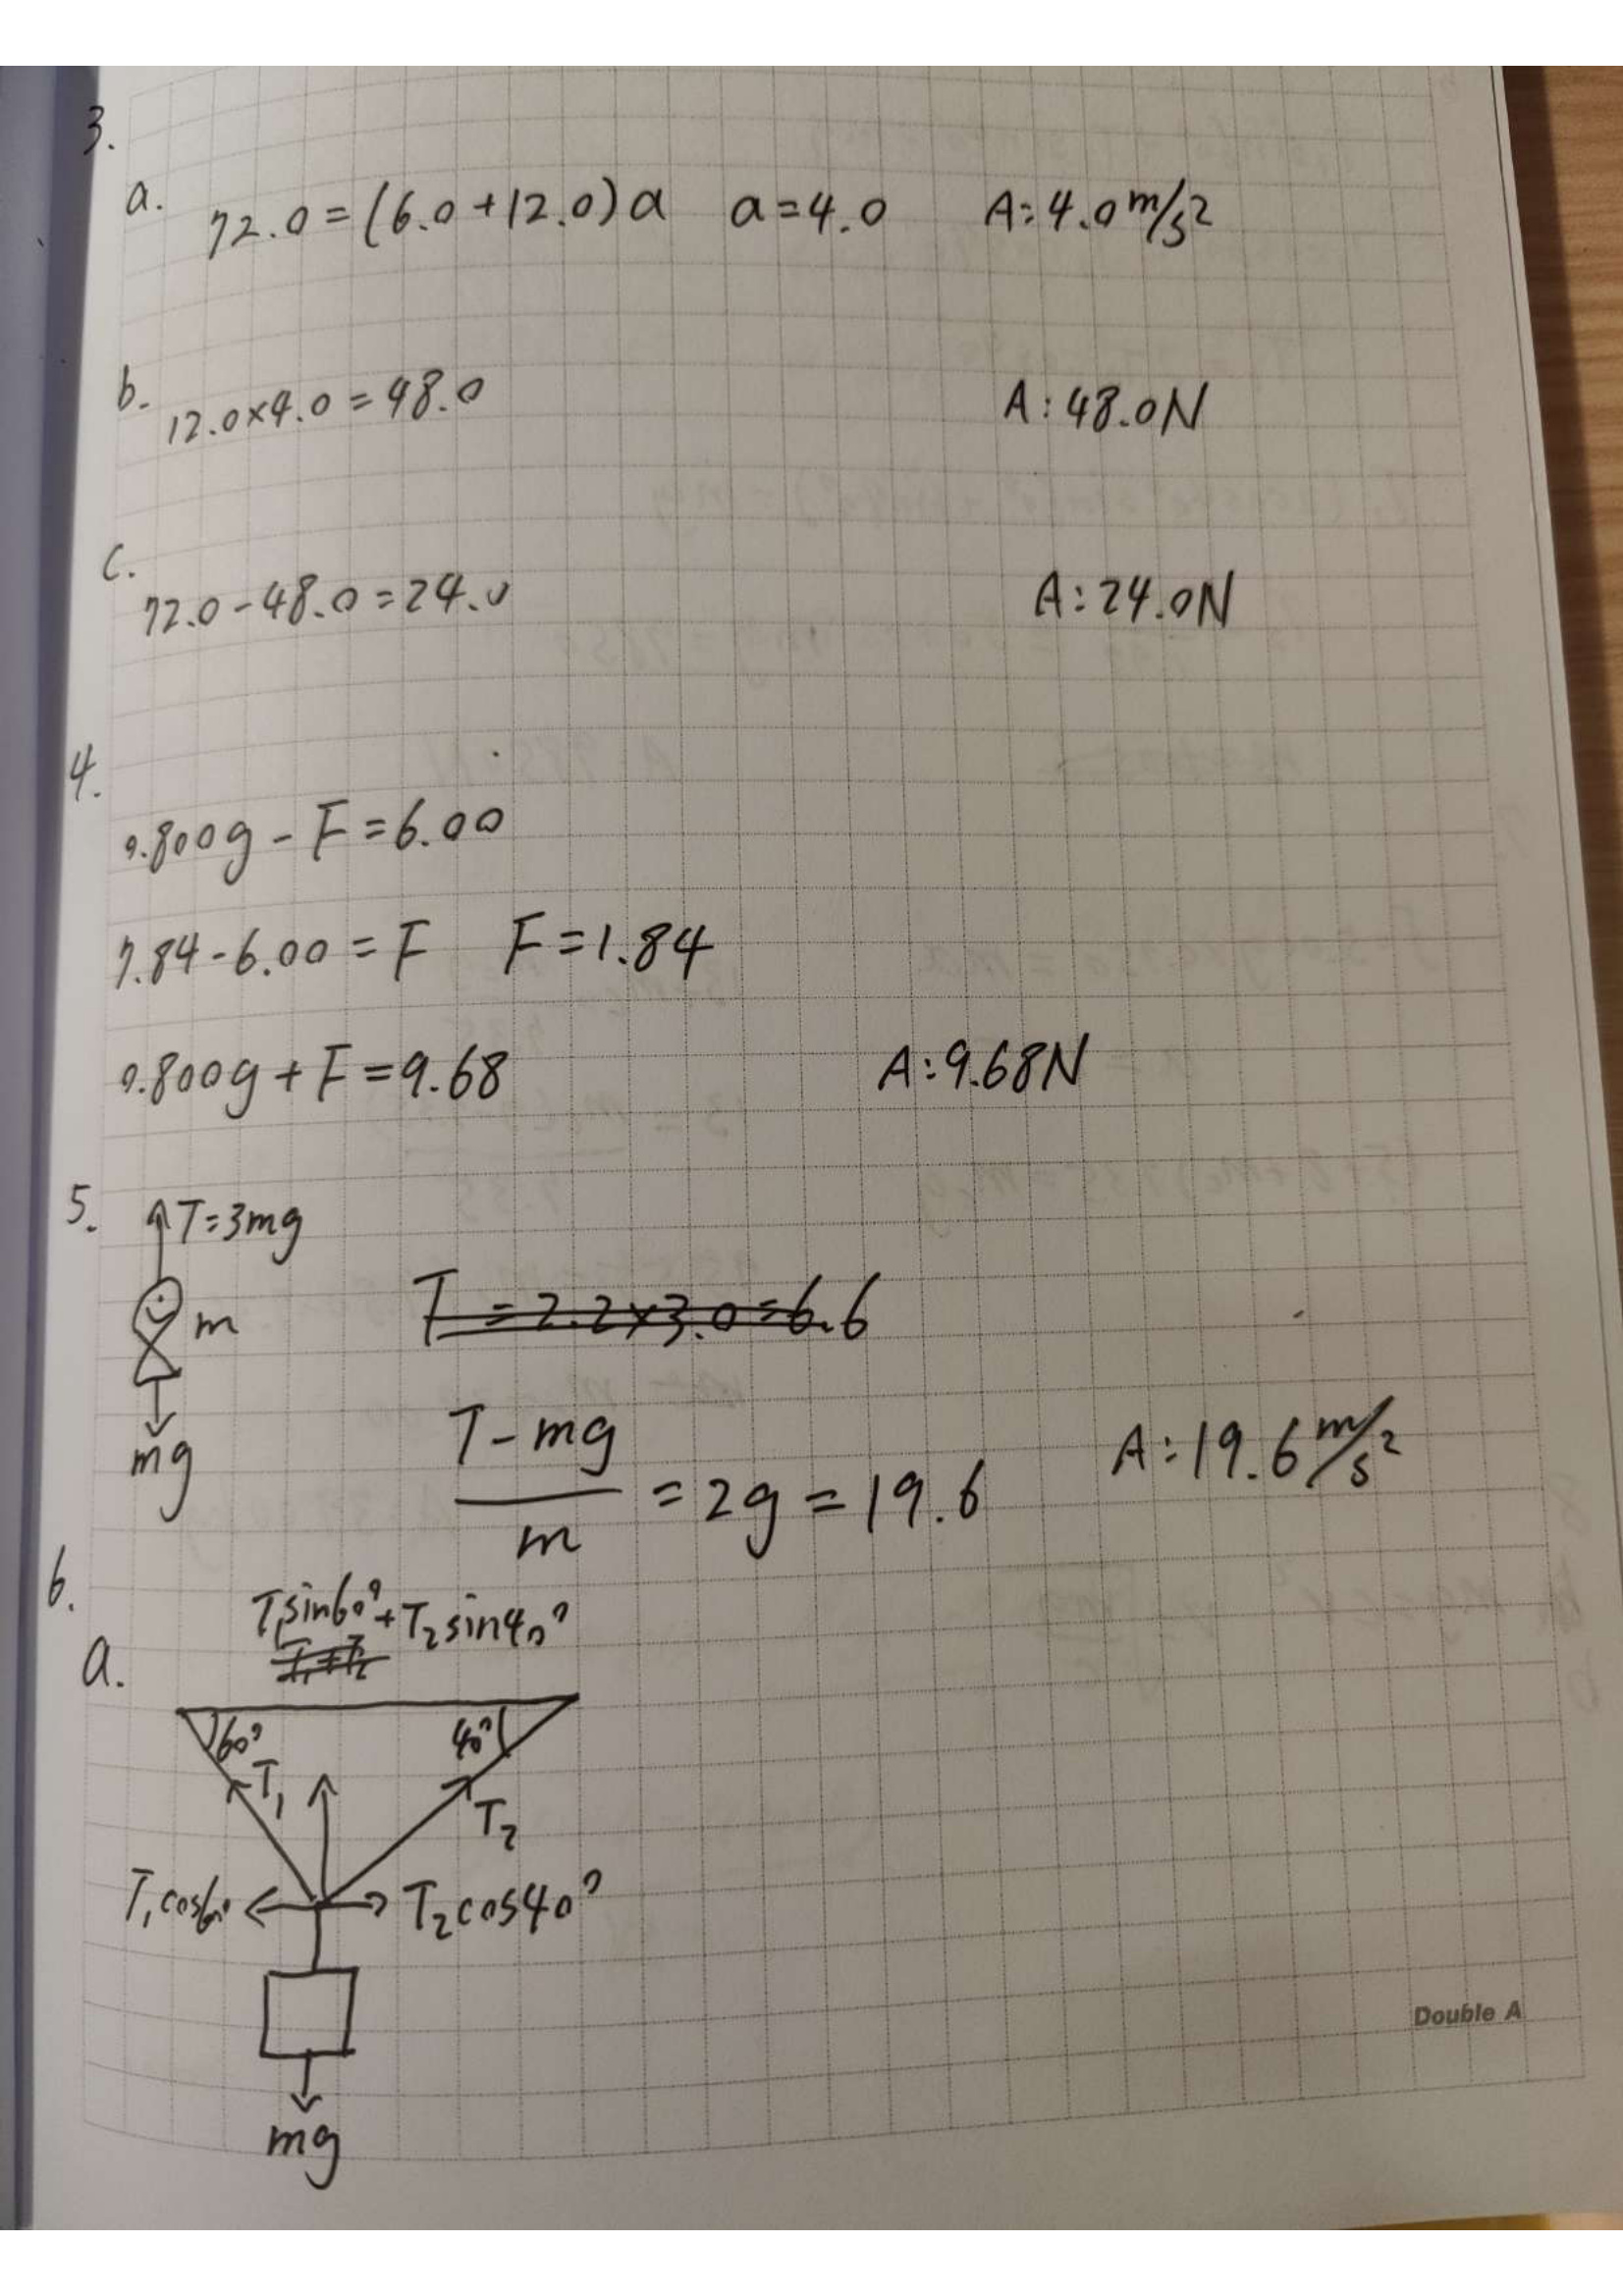 3.
a. 72.0=(6.0+12.0)a a=4.0 A:4.0m/s²
b. 12.0×4.0=48.0 A:48.0N
c. 72.0-48.0=24.0 A:24.0N
4.
0.800g-F=6.00
7.84-6.00=F F=1.84
0.800g+F=9.68 A:9.68N
5. T=3mg
T=2.2×3.0=6.6
m
mg
T-mg/m=2g=19.6 A:19.6m/s²
6.
T₁sin60°+T₂sin40°
a. T₁=T₂
60° 40°
T₁ T₂
T₁cos60° T₂cos40°
mg
Double A